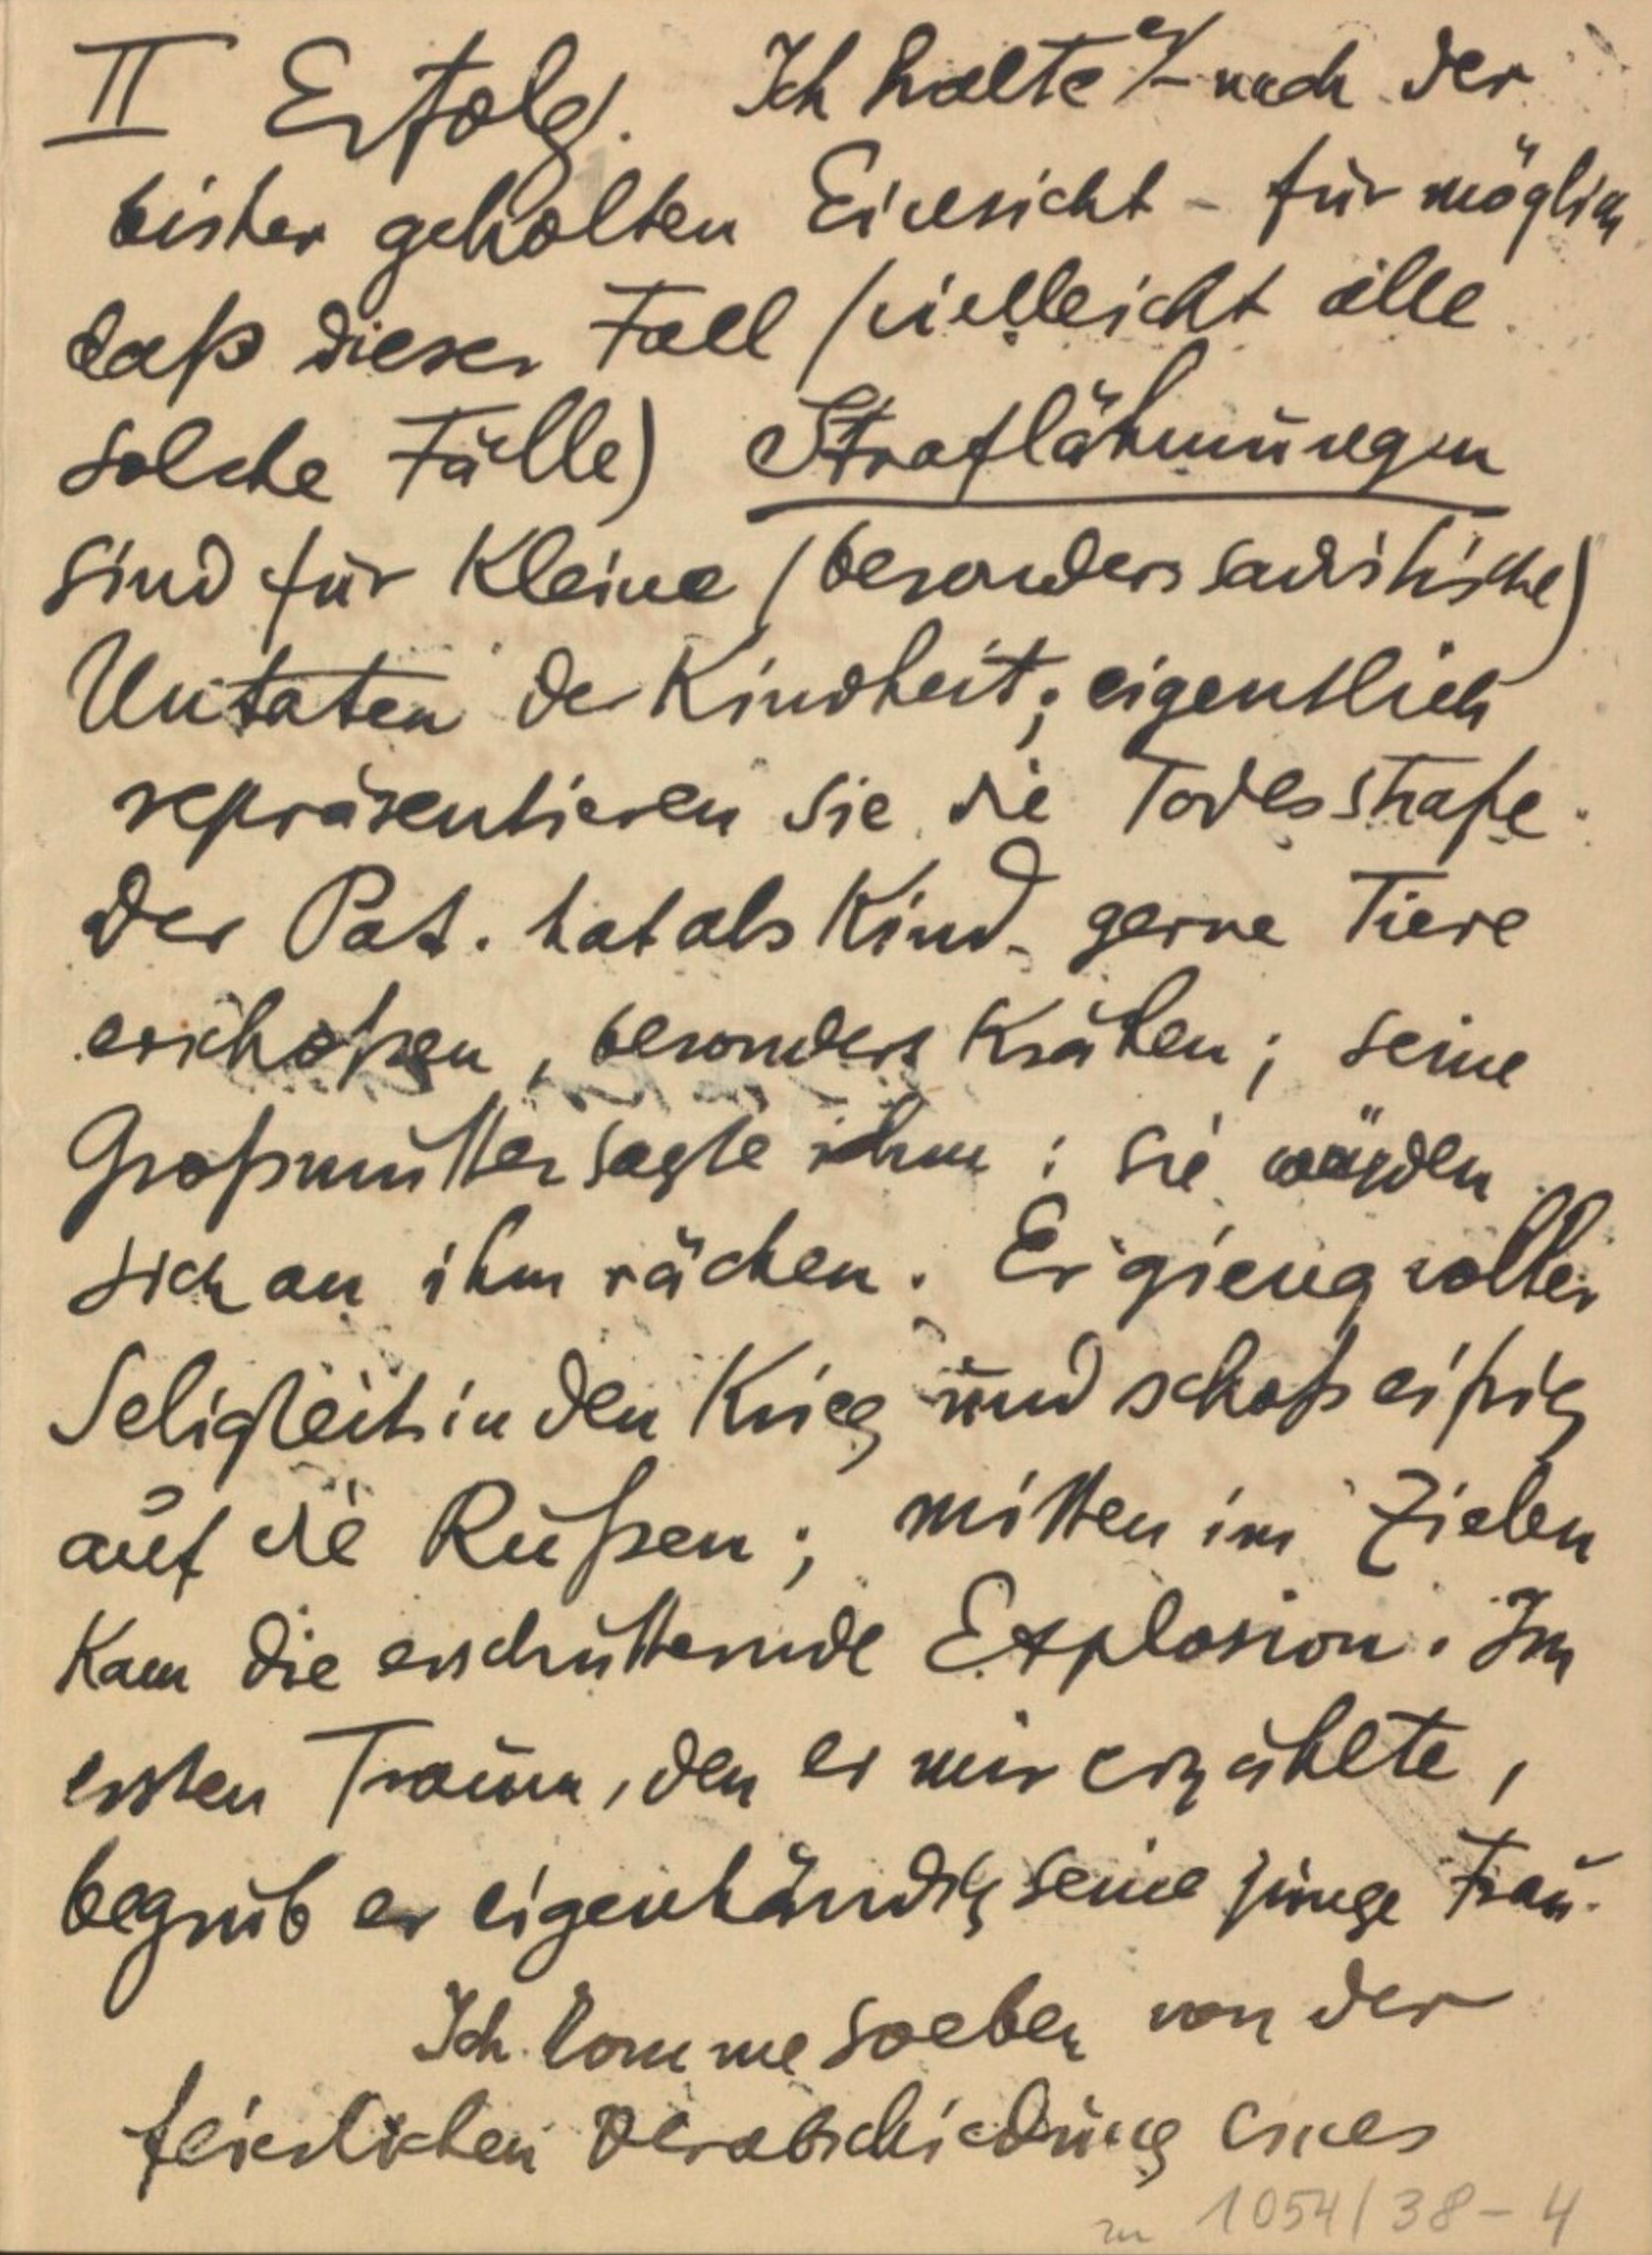 II Erfolg. Ich halte es – nach der
bisher geholten Einsicht – für möglich
daß dieser Fall (vielleicht alle
solche Fälle) Straflähmungen
sind für kleine (besonders sadistische)
Untaten der Kindheit; eigentlich
repräsentieren sie die Todesstrafe.
Der Pat. hat als Kind gerne Tiere
erschoßen, besonders Krähen; seine
Großmutter sagte ihm: sie würden
sich an ihm rächen. Er gieng voller
Seligkeit in den Krieg und schoß eifrig
auf die Rußen; mitten im Zielen
kam die erschütternde Explosion. Im
ersten Traum, den er mir erzählte,
begrub er eigenhändig seine junge Frau.
Ich komme soeben von der
feierlichen Verabschiedung eines
zu 1054/38-4